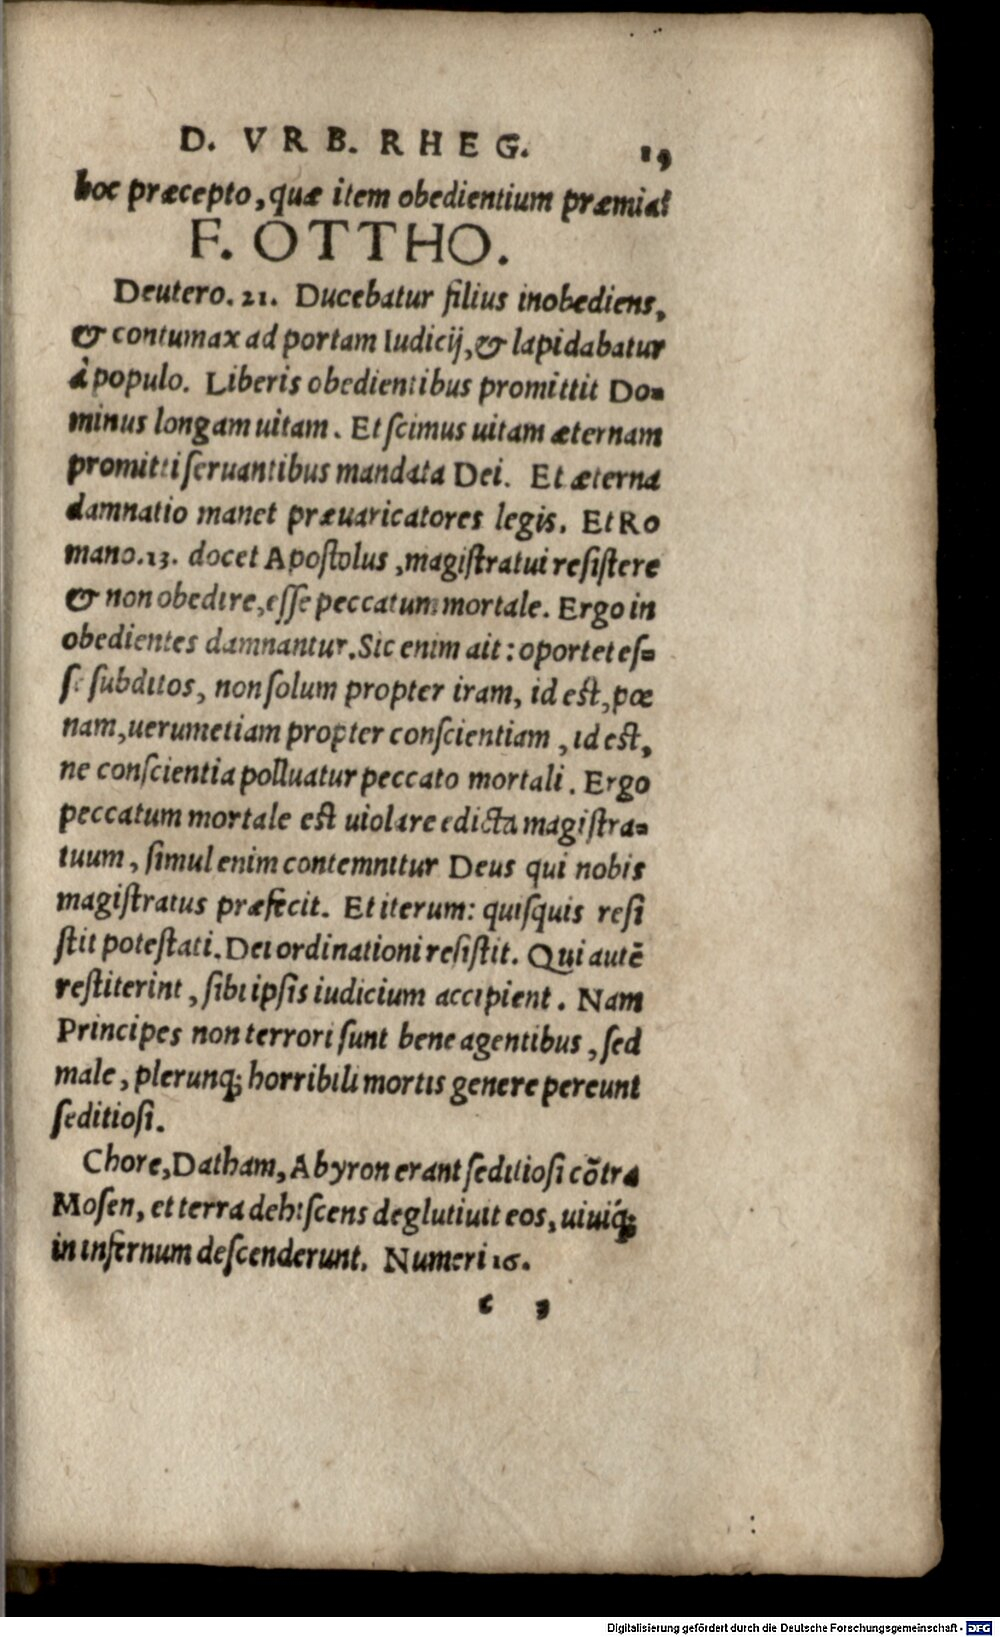 D. VRB. RHEG. 19
hoc præcepto, quæ item obedientium præmia?
F. OTTHO.
Deutero. 21. Ducebatur filius inobediens,
& contumax ad portam Iudicij, & lapidabatur
à populo. Liberis obedientibus promittit Do-
minus longam uitam. Et scimus uitam æternam
promitti seruantibus mandata Dei. Et æterna
damnatio manet præuaricatores legis. Et Ro
mano. 13. docet Apostolus, magistratui resistere
& non obedire, esse peccatum mortale. Ergo in
obedientes damnantur. Sic enim ait: oportet es-
se subditos, non solum propter iram, id est, pœ
nam, uerumetiam propter conscientiam, id est,
ne conscientia polluatur peccato mortali. Ergo
peccatum mortale est uiolare edicta magistra-
tuum, simul enim contemnitur Deus qui nobis
magistratus præfecit. Et iterum: quisquis resi
stit potestati. Dei ordinationi resistit. Qui autē
restiterint, sibi ipsis iudicium accipient. Nam
Principes non terrori sunt bene agentibus, sed
male, plerunq; horribili mortis genere pereunt
seditiosi.
Chore, Datham, Abyron erant seditiosi cōtra
Mosen, et terra dehiscens deglutiuit eos, uiuiq́;
in infernum descenderunt. Numeri 16.
c 3
Digitalisierung gefördert durch die Deutsche Forschungsgemeinschaft - DFG